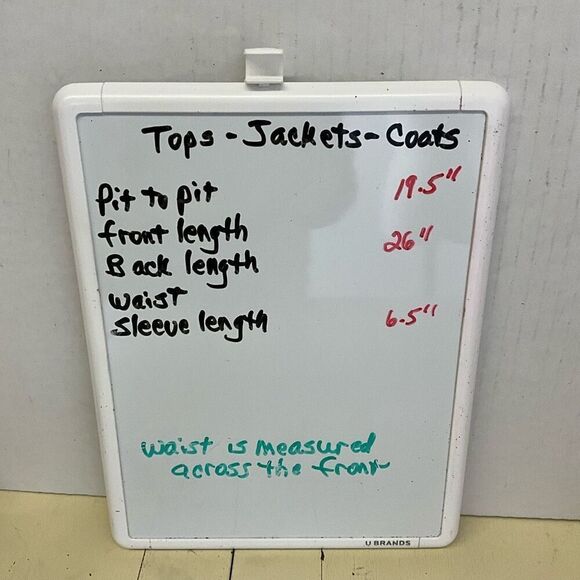 Tops - Jackets - Coats
Pit to pit 19.5"
front length 26"
Back length
waist
Sleeve length 6.5"
waist is measured
across the front
U BRANDS